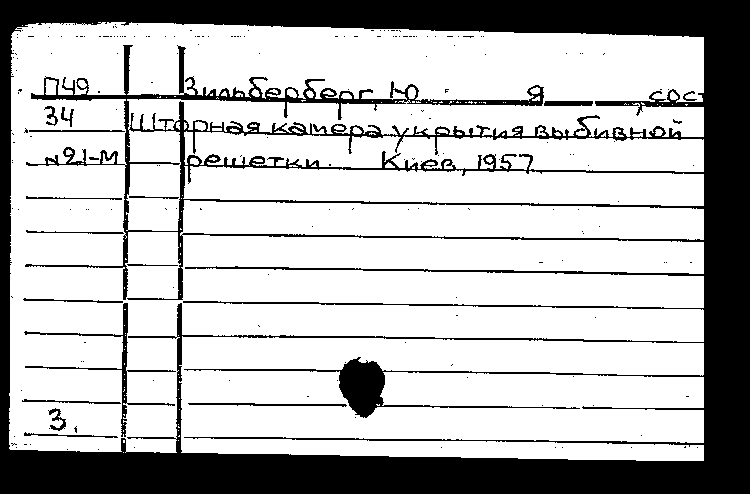 П49. Зильберберг, Ю. Я., сост
34 Шторная камера укрытия выбивной
№21-М решетки. Киев, 1957
З.